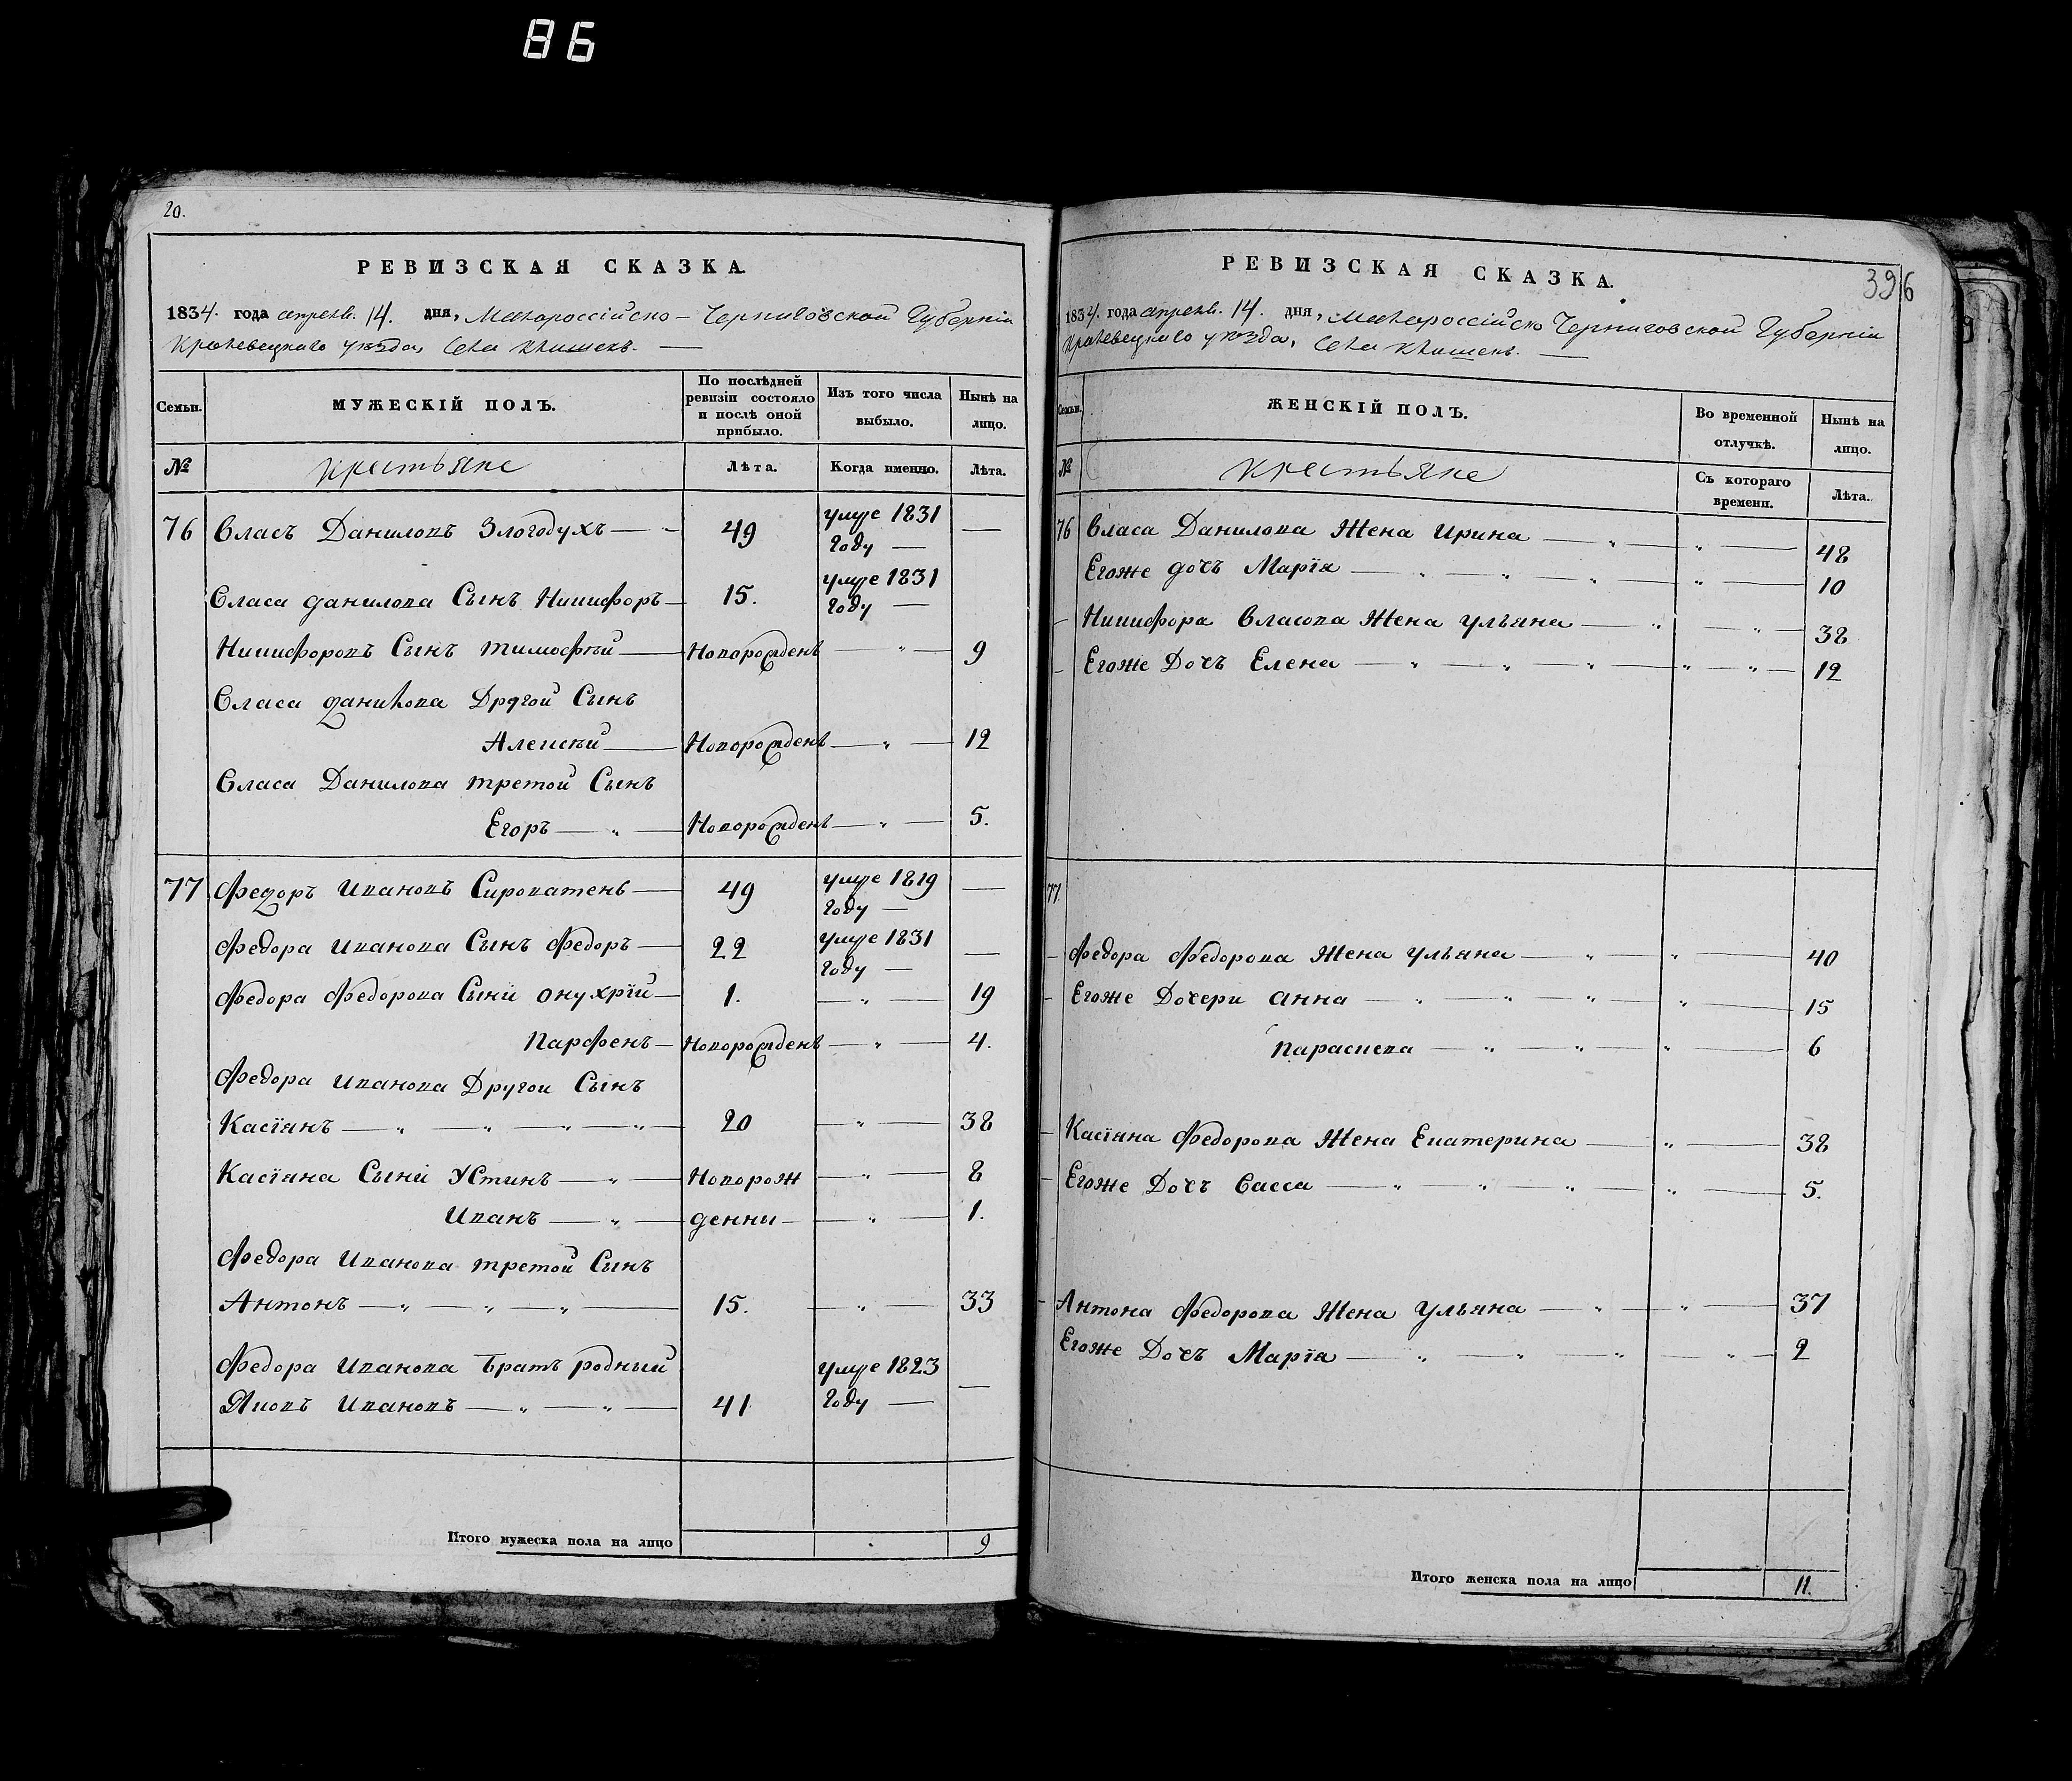 86
20.
РЕВИЗСКАЯ СКАЗКА.
1834. года апреля. 14. дня, Малороссійско - Черниговской Губерніи
Кролевецкаго уезда, Села Клишекъ.
Семьи.
МУЖЕСКІЙ ПОЛЪ.
По послѣдней ревизіи состояло и послѣ оной прибыло.
Изъ того числа выбыло.
Нынѣ на лицо.
№
Крестьяне
Лѣта.
Когда именно.
Лѣта.
76 Власъ Даниловъ Злогодухъ 49 умре 1831 году
Власа данилова Сынъ Никифоръ 15. умре 1831 году
Никифоровъ Сынъ тимофѣй Новорожденъ 9
Власа данилова Другой Сынъ
Алексѣй Новорожденъ 12
Власа Данилова третой Сынъ
Егоръ Новорожденъ 5.
77 Федоръ Ивановъ Сироватень 49 умре 1819 году
Федора Иванова Сынъ Федоръ 22 умре 1831 году
Федора Федорова Сыни Онухрїй 1. 19
Парфенъ Новорожденъ 4.
Федора Иванова Другой Сынъ
Касїянъ 20 38
Касїяна Сыни Устинъ Новорож 8
Иванъ денни 1.
Федора Иванова третой Сынъ
Антонъ 15. 33
Федора Иванова Братъ родний умре 1823
Яковъ Ивановъ 41 году
Итого мужеска пола на лицо 9
396
РЕВИЗСКАЯ СКАЗКА.
1834. года апреля. 14. дня, Малороссійско Черниговской Губерніи
Кролевецкаго уезда, Села Клишекъ.
Семьи.
ЖЕНСКІЙ ПОЛЪ.
Во временной отлучкѣ.
Нынѣ на лицо.
№
Крестьяне
Съ котораго времени.
Лѣта.
76 Власа Данилова Жена Ирина 48
Егоже дочъ Марїя 10
Никифора Власова Жена ульяна 38
Егоже Дочъ Елена 12
77.
Федора Федорова Жена ульяна 40
Егоже Дочери анна 15
Параскева 6
Касїяна Федорова Жена Екатерина 38
Егоже Дочъ Васса 5.
Антона Федорова Жена Ульяна 37
Егоже Дочъ Марїя 2
Итого женска пола на лицо 11.